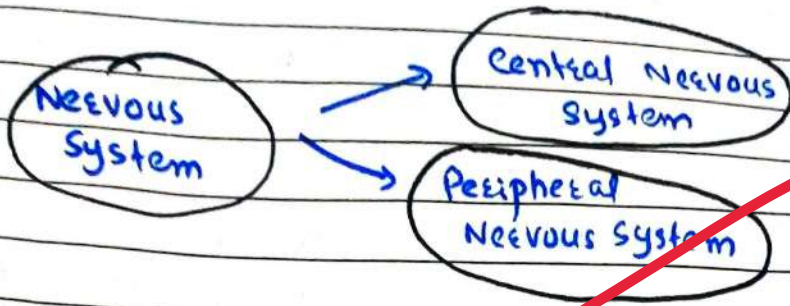 Nervous
System
Central Nervous
System
Peripheral
Nervous System